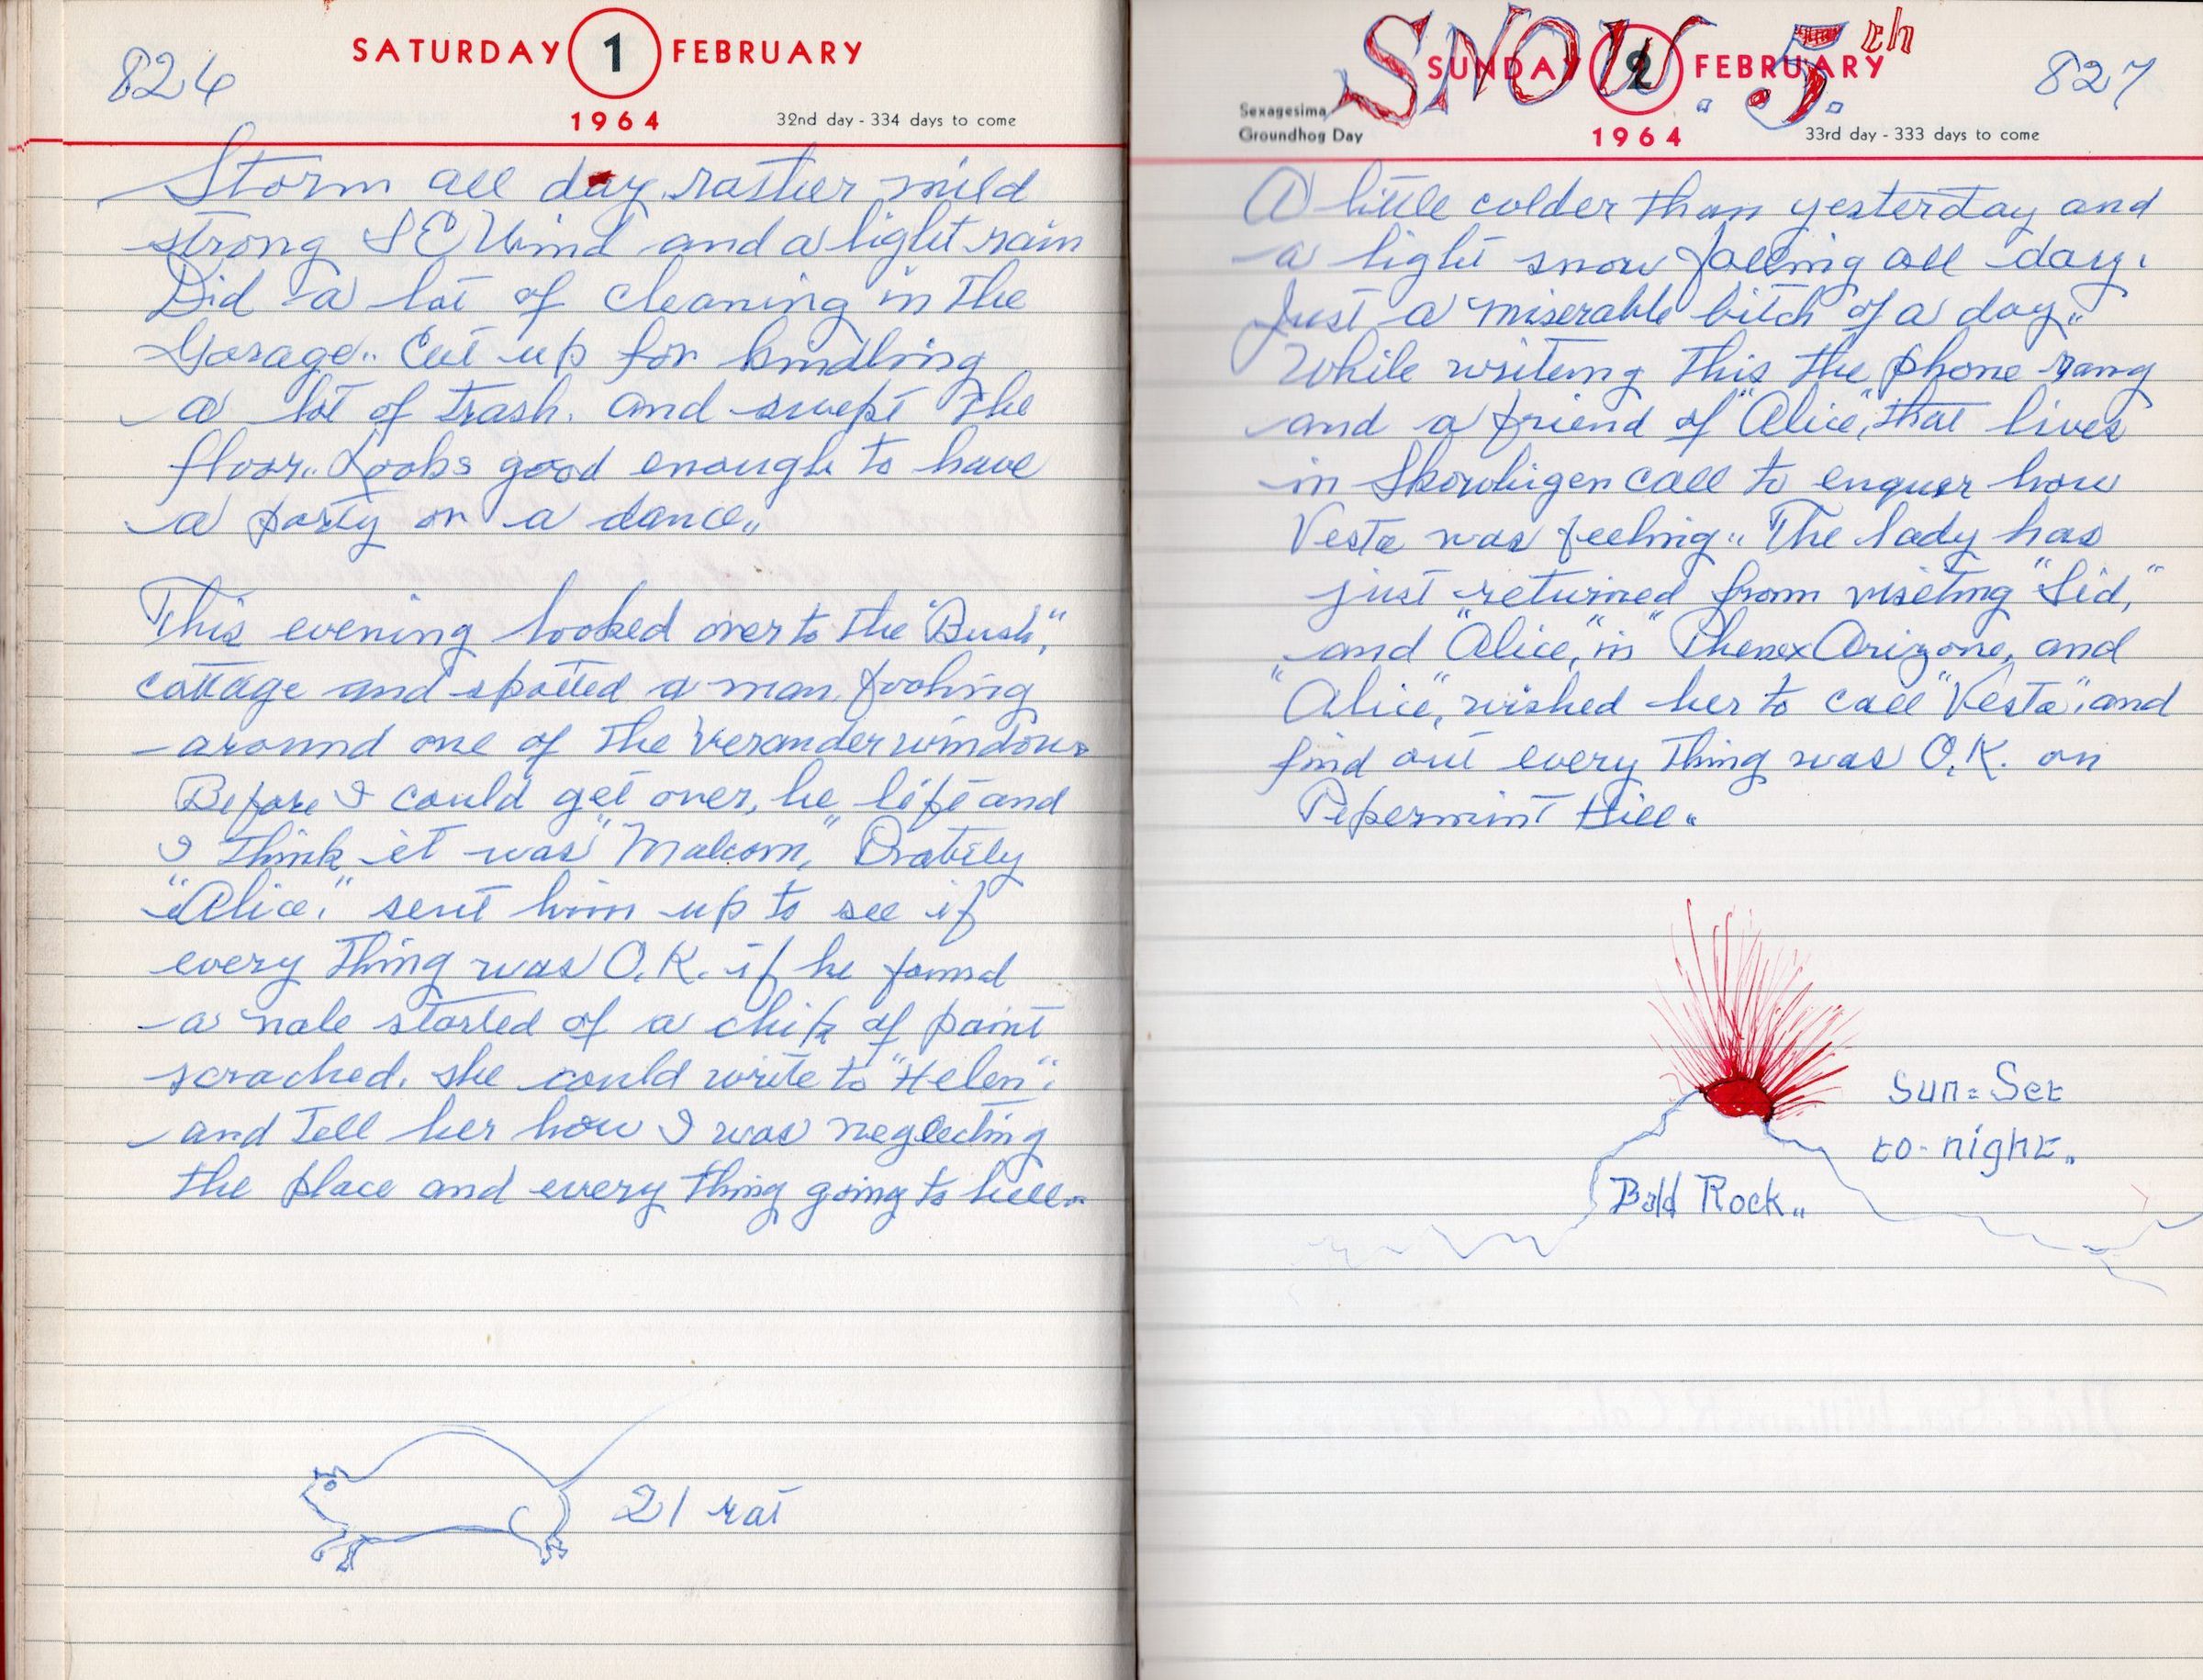 826
SATURDAY 1 FEBRUARY
1964
32nd day - 334 days to come
Storm all day rather mild
strong SE Wind and a light rain
Did a lot of cleaning in the
Garage.. Cut up for kindling
a lot of trash. and swept the
floor.. Looks good enough to have
a party or a dance,,
This evening looked over to the "Bush,"
cottage and spotted a man fooling
around one of the Verander windows
Before I could get over, he left and
I think it was "Malcom," Probily
"Alice," sent him up to see if
every thing was O.K. if he found
a nale started of a chip of paint
scrached. she could write to "Helen".
and Tell her how I was neglecting
the place and every thing going to hell..
21 rat
SNOW. 5.th
827
SUNDAY 2 FEBRUARY
Sexagesima
Groundhog Day
1964
33rd day - 333 days to come
A little colder than yesterday and
a light snow falling all day.
Just a miserable bitch of a day,,
While writeing This the phone rang
and a friend of "Alice," that lives
in Skowhigen call to enquer how
Vesta was feeling.. The lady has
just returned from viseting "Sid,"
and "Alice," in Phenex Arizone, and
"Alice", wished her to call "Vesta", and
find out every Thing was O.K. on
Pepermint Hill..
Sun=Set
to-night..
Bald Rock..